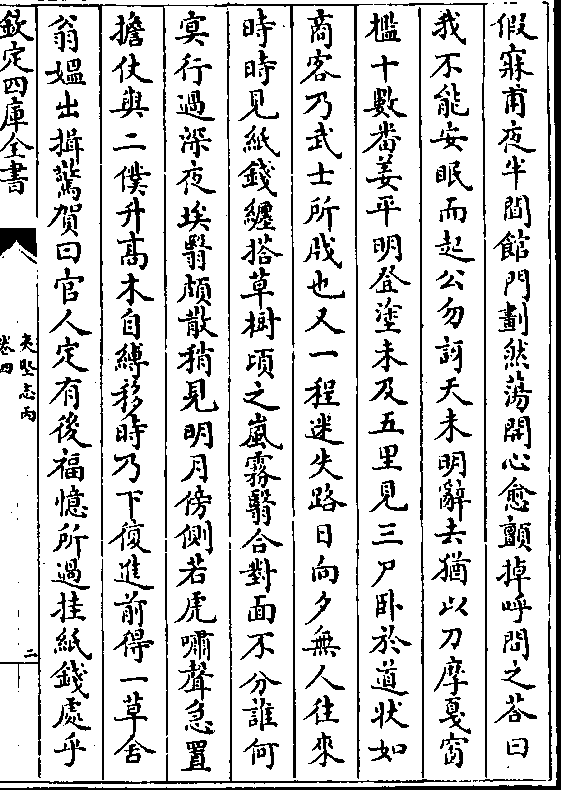 假寐甫夜半間館門劃然蕩開心愈顫掉呼問之荅曰
我不能安眠而起公勿訝天未明辭去猶以刀摩戛窗
檻十數畨姜平明登塗未及五里見三尸卧於道状如
商客乃武士所戕也又一程迷失路日向夕無人往來
時時見紙錢纏搭草樹頃之嵐霧翳合對面不分誰何
㝠行過深夜埃翳頗散稍見明月傍側若虎嘯聲急置
擔仗與二僕升髙木自縛移時乃下復進前得一草舍
翁媼出揖驚賀曰官人定有後福憶所過挂紙錢處乎
欽定四庫全書
夷堅志丙
卷四
二